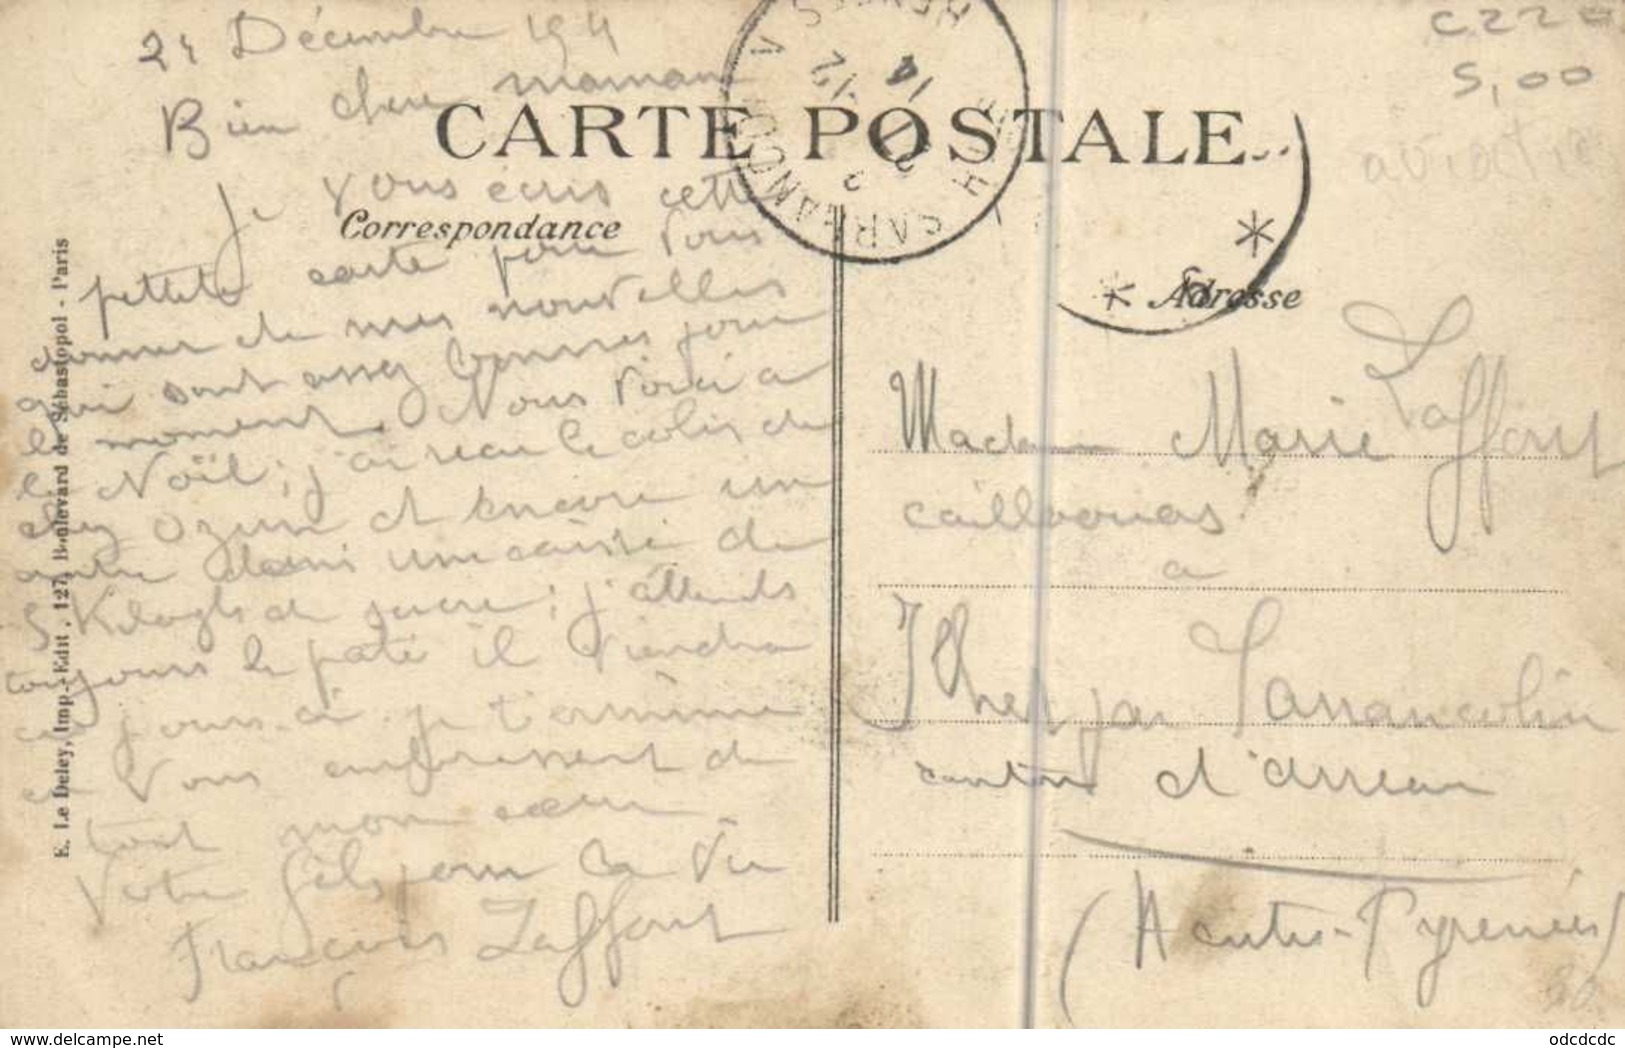 24 Décembre 1911
Bien chere maman
CARTE POSTALE
Correspondance
Je vous écris cette
petite carte pour vous
donner de mes nouvelles
qui sont assez bonnes pour
le moment. Nous voici a
la Noël; j'ai reçu le colis de
chez Ozun et encore un
autre dans une caisse de
5 Kilogs de sucre; j'attends
toujours le paté il viendra
ces jours ci je termine
en vous embrassant de
tout mon cœur
Votre fils pour la vie
François Laffont
E. Le Deley, Imp.-Edit, 127, Boulevard de Sébastopol - Paris
C22
5,00
aviation
Adresse
Madame Marie Laffont
caillaouas
a
Ilhet par Sarrancolin
canton d'Arreau
(Hautes-Pyrénées)
www.delcampe.net
odcdcdc